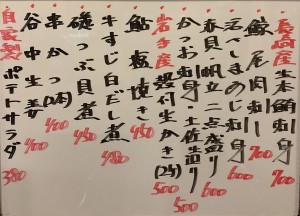 長崎産生本鮪刺身 700
鯨尾肉刺し 700
石しまあじ刺身 600
赤貝・帆立二点盛り 600
かつお刺身・土佐造り 500
岩手産殻付生かき(2ケ) 500
鮎塩焼き 450
牛すじ白だし煮 480
磯つぶ貝煮 450
串かつ(2本) 400
谷中生姜 400
自家製ポテトサラダ 380